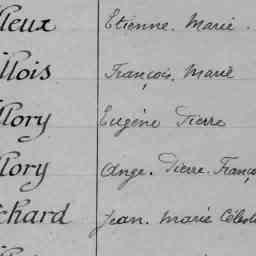 lleux Etienne. Marie.
llois François. Marie
llory Eugène Pierre
llory Ange. Pierre. Franço
chard Jean. Marie Célest